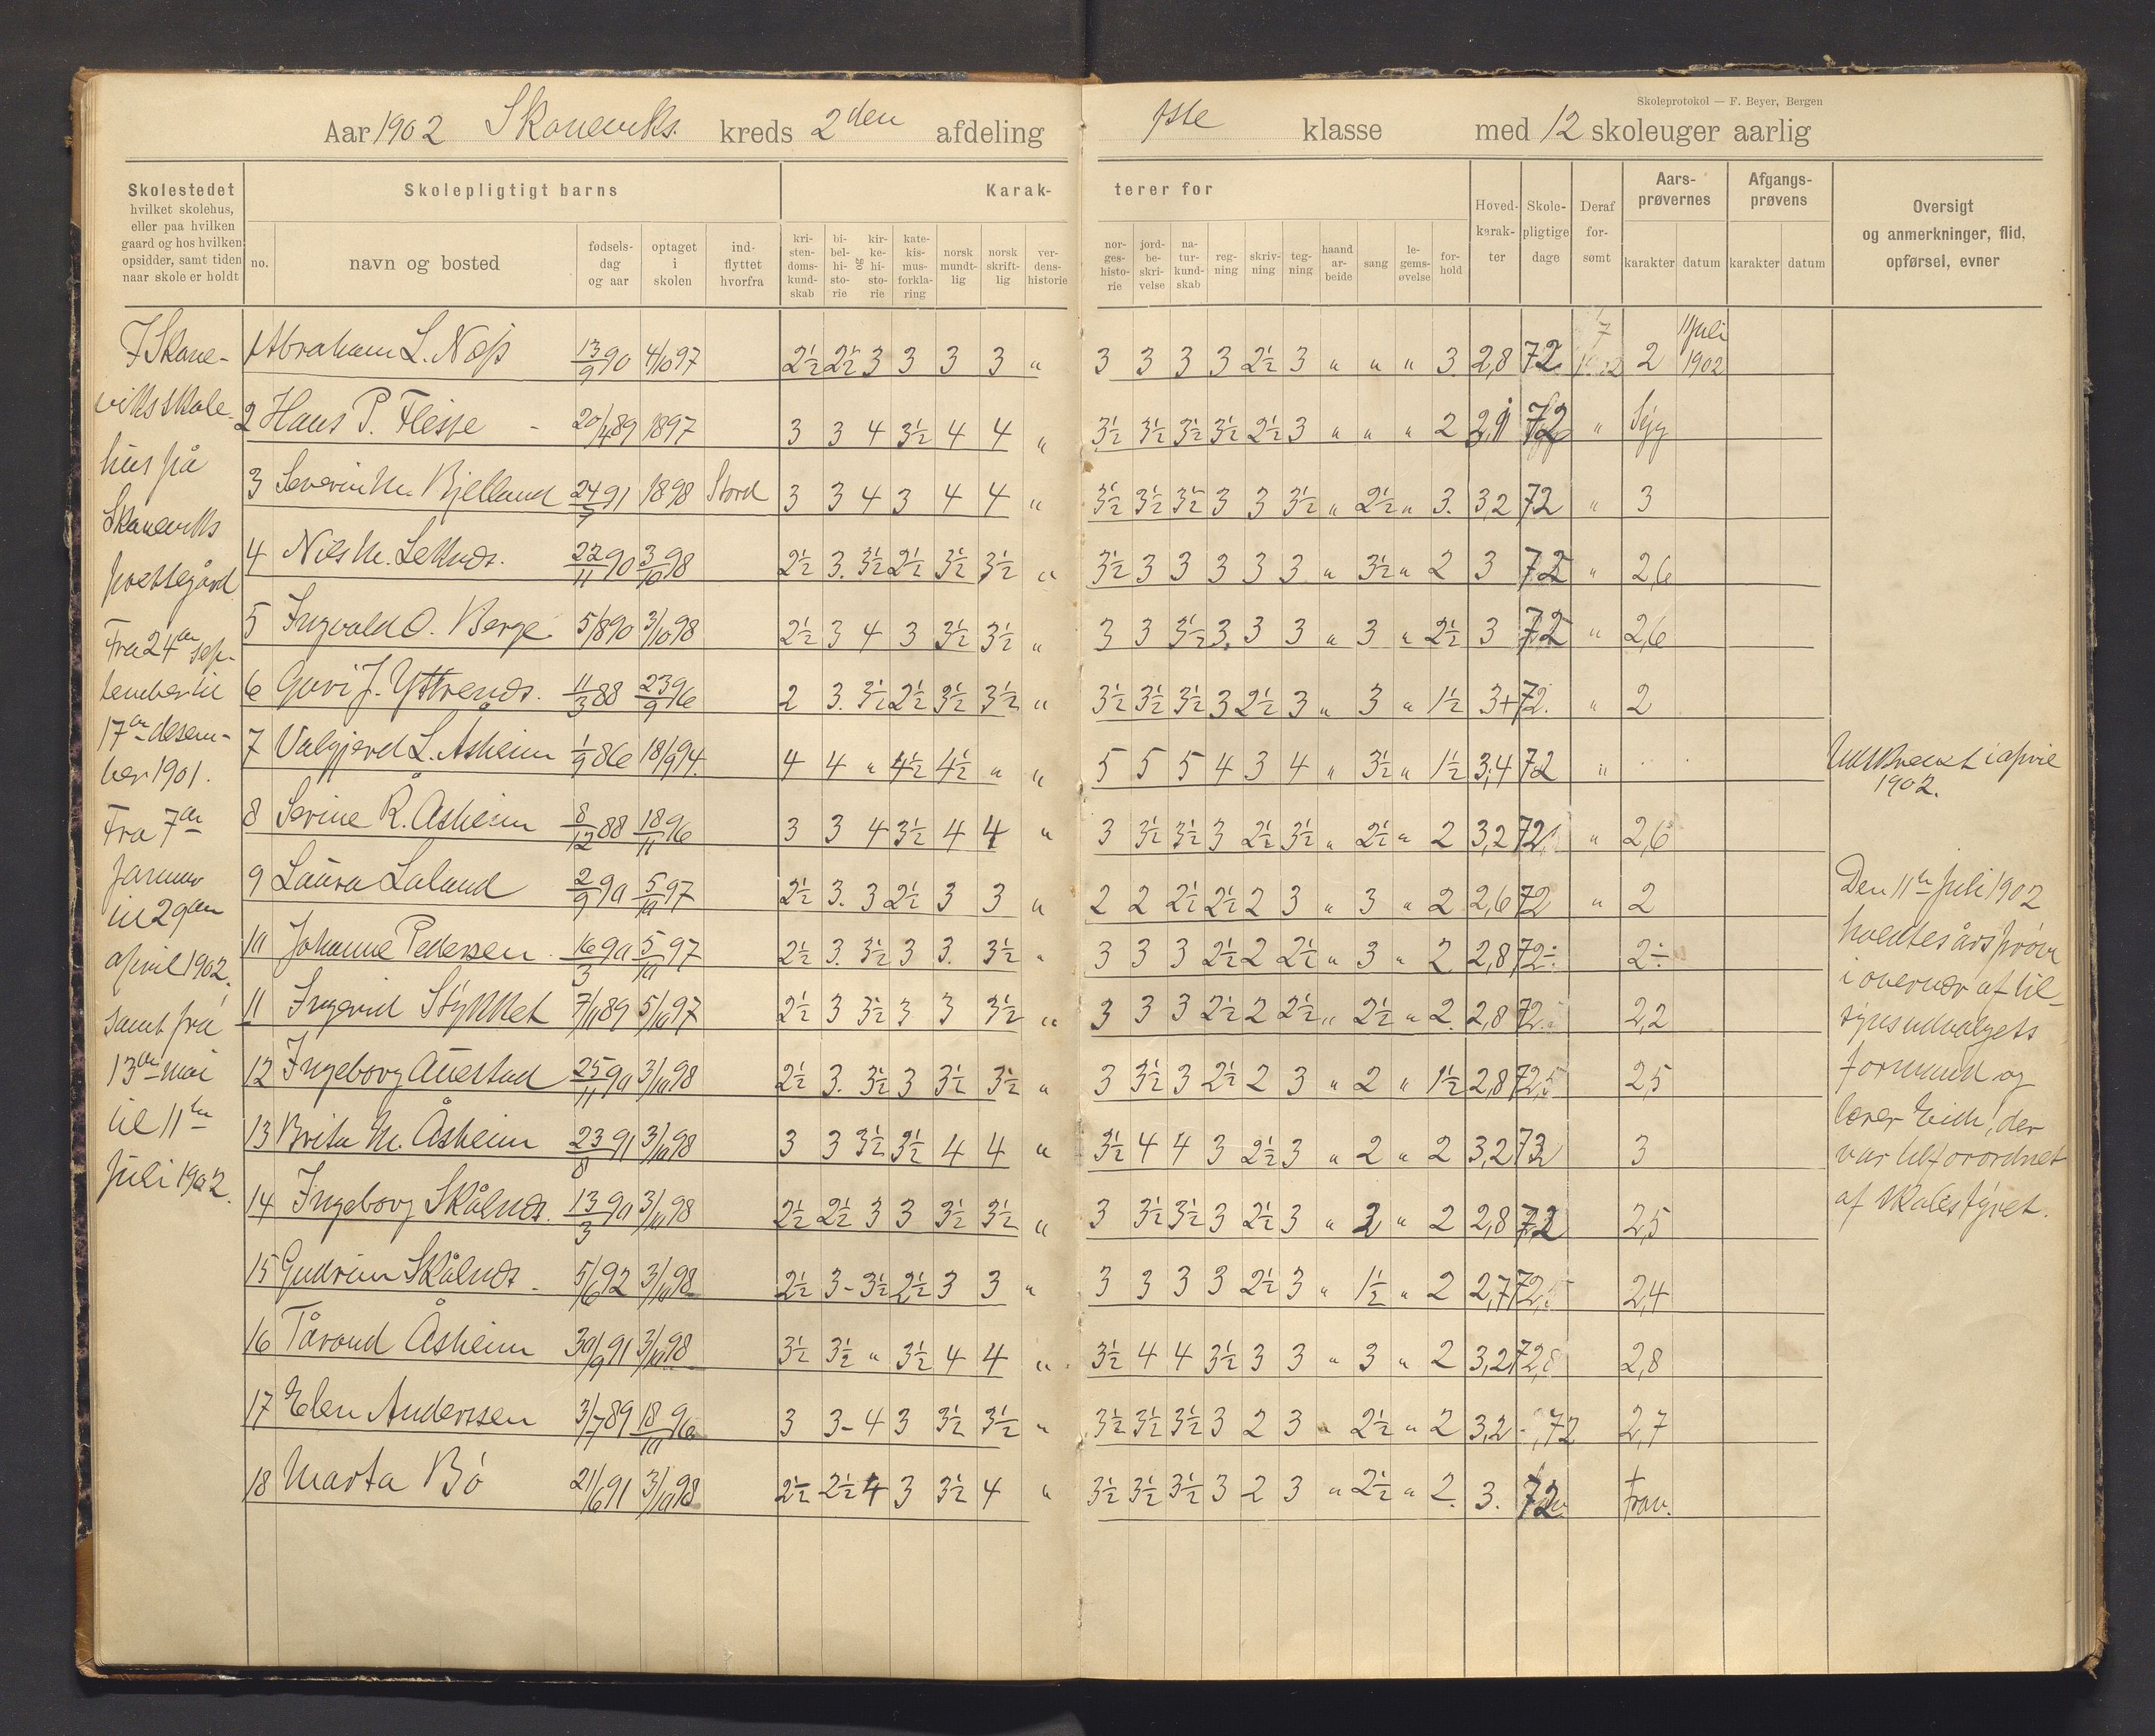 Skoleprotokol — F. Beyer, Bergen
Aar 1902 Skaneviks kreds 2den afdeling 1ste klasse med 12 skoleuger aarlig
Skolestedet hvilket skolehus, eller paa hvilken gaard og hos hvilken opsidder, samt tiden naar skole er holdt
Skolepligtigt barns
no. navn og bosted fødsels-dag og aar optaget i skolen ind-flyttet hvorfra
Karak- terer for
kri-sten-doms-kund-skab bi-bel-hi-sto-rie og kir-ke-hi-sto-rie kate-kis-mus-forkla-ring norsk mundt-lig norsk skrift-lig ver-dens-historie
nor-ges-histo-rie jord-be-skri-velse na-tur-kund-skab reg-ning skriv-ning teg-ning haand ar-beide sang le-gems-øvelse for-hold
Hoved-karak-ter Skole-pligtige dage Deraf for-sømt
Aars-prøvernes karakter datum
Afgangs-prøvens karakter datum
Oversigt og anmerkninger, flid, opførsel, evner
I Skane-
viks skole-
hus på
Skaneviks
prestegård
Fra 24de sep-
tember til
17de desem-
ber 1901.
Fra 7de
januar
til 29de
april 1902,
samt fra
13de mai
til 11te
juli 1902.
1 Abraham L. Næs 13/9 90 4/10 97 2½ 2½ 3 3 3 3 " 3 3 3 3 2½ 3 " " " 3 2,8 72 2 11 juli 1902
2 Hans P. Flesje 20/4 89 1897 3 3 4 3½ 4 4 " 3½ 3½ 3½ 3½ 2½ 3 " " " 2 72 " Syg
3 Severin M. Bjelland 24 91 1898 Stord 3 3 4 3 4 4 " 3½ 3½ 3½ 3 3 3½ " 2½ " 3. 3,2 72 " 3
4 Nils M. 22/11 90 3/10 98 2½ 3. 3½ 2½ 3½ 3½ " 3½ 3 3 3 3 3 " 3½ " 2 3 72 " 2,6
5 Ingvald O. Berge 5/8 90 3/10 98 2½ 3 4 3 3½ 3½ " 3 3 3½ 3. 3 3 " 3 " 2½ 3 72 " 2,6
6 Guri J. 11/3 88 23/9 96 2 3. 3½ 2½ 3½ 3½ " 3½ 3½ 3½ 3 2½ 3 " 3 " 1½ 3+ 72. " 2
7 Valgjerd L. Åsheim 1/9 86 18/9 94. 4 4 " 4½ 4½ " " 5 5 5 4 3 4 " 3½ " 1½ 3,4 72 "
Udskrevet i april
1902.
8 Serine R. Åsheim 8/12 88 18/11 96 3 3 4 3½ 4 4 " 3 3½ 3½ 3 2½ 3½ " 2½ " 2 3,2 72 " 2,6
9 Laura Laland 2/9 90 5/10 97 2½ 3. 3 2½ 3 3 " 2 2 2½ 2½ 2 3 " 3 " 2 2,6 72 " 2
10 Johanne Pedersen 16/3 90 5/10 97 2½ 3. 3½ 3 3. 3½ " 3 3 3 2½ 2 2½ " 3 " 2 2,8 72 2÷
11 Ingerid Stykket 7/10 89 5/10 97 2½ 3 3½ 3 3 3½ " 3 3 3 2½ 2 2½ " 2½ " 2. 2,8 72 2,2
12 Ingeborg Auestad 25/11 90 3/10 98 2½ 3. 3½ 3 3½ 3½ " 3 3½ 3 2½ 2 3 " 2 " 1½ 2,8 72 2,5
13 Brita M. Åsheim 23/8 91 3/10 98 3 3 3½ 3½ 4 4 " 3½ 4 4 3 2½ 3 " 2 " 2 3,2 72 3
14 Ingeborg Skålnes. 13/3 90 3/10 98 2½ 2½ 3 3 3½ 3½ " 3 3½ 3½ 3 2½ 3 " 2 " 2 2,8 72 2,5
15 Gudrun Skålnes 5/6 92 3/10 98 2½ 3- 3½ 2½ 3 3 " 3 3 3 3 2½ 3 " 1½ " 2 2,7 72 2,4
16 Tårand Åsheim 30/9 91 3/10 98 3½ 3½ " 3½ 4 4 " 3½ 4 4 3½ 3 3 " 3 " 2 3,2 72 2,8
17 Elen Andersen 3/7 89 18/10 96 3 3- 4 3 3½ 3½ " 3½ 3½ 3½ 3 2 3 " 2½ " 2 3,2 72 2,7
18 Marta Bø 21/6 91 3/10 98 2½ 2½ 4 3 3½ 4 " 3½ 3½ 3½ 3 2 3 " 2½ " 2. 3. 72 frav.
Den 11te juli 1902
holdtes årsprøve
i overvær af til-
synsudvalgets
formand og
lærer Eich, der
var tilforordnet
af skolestyret.